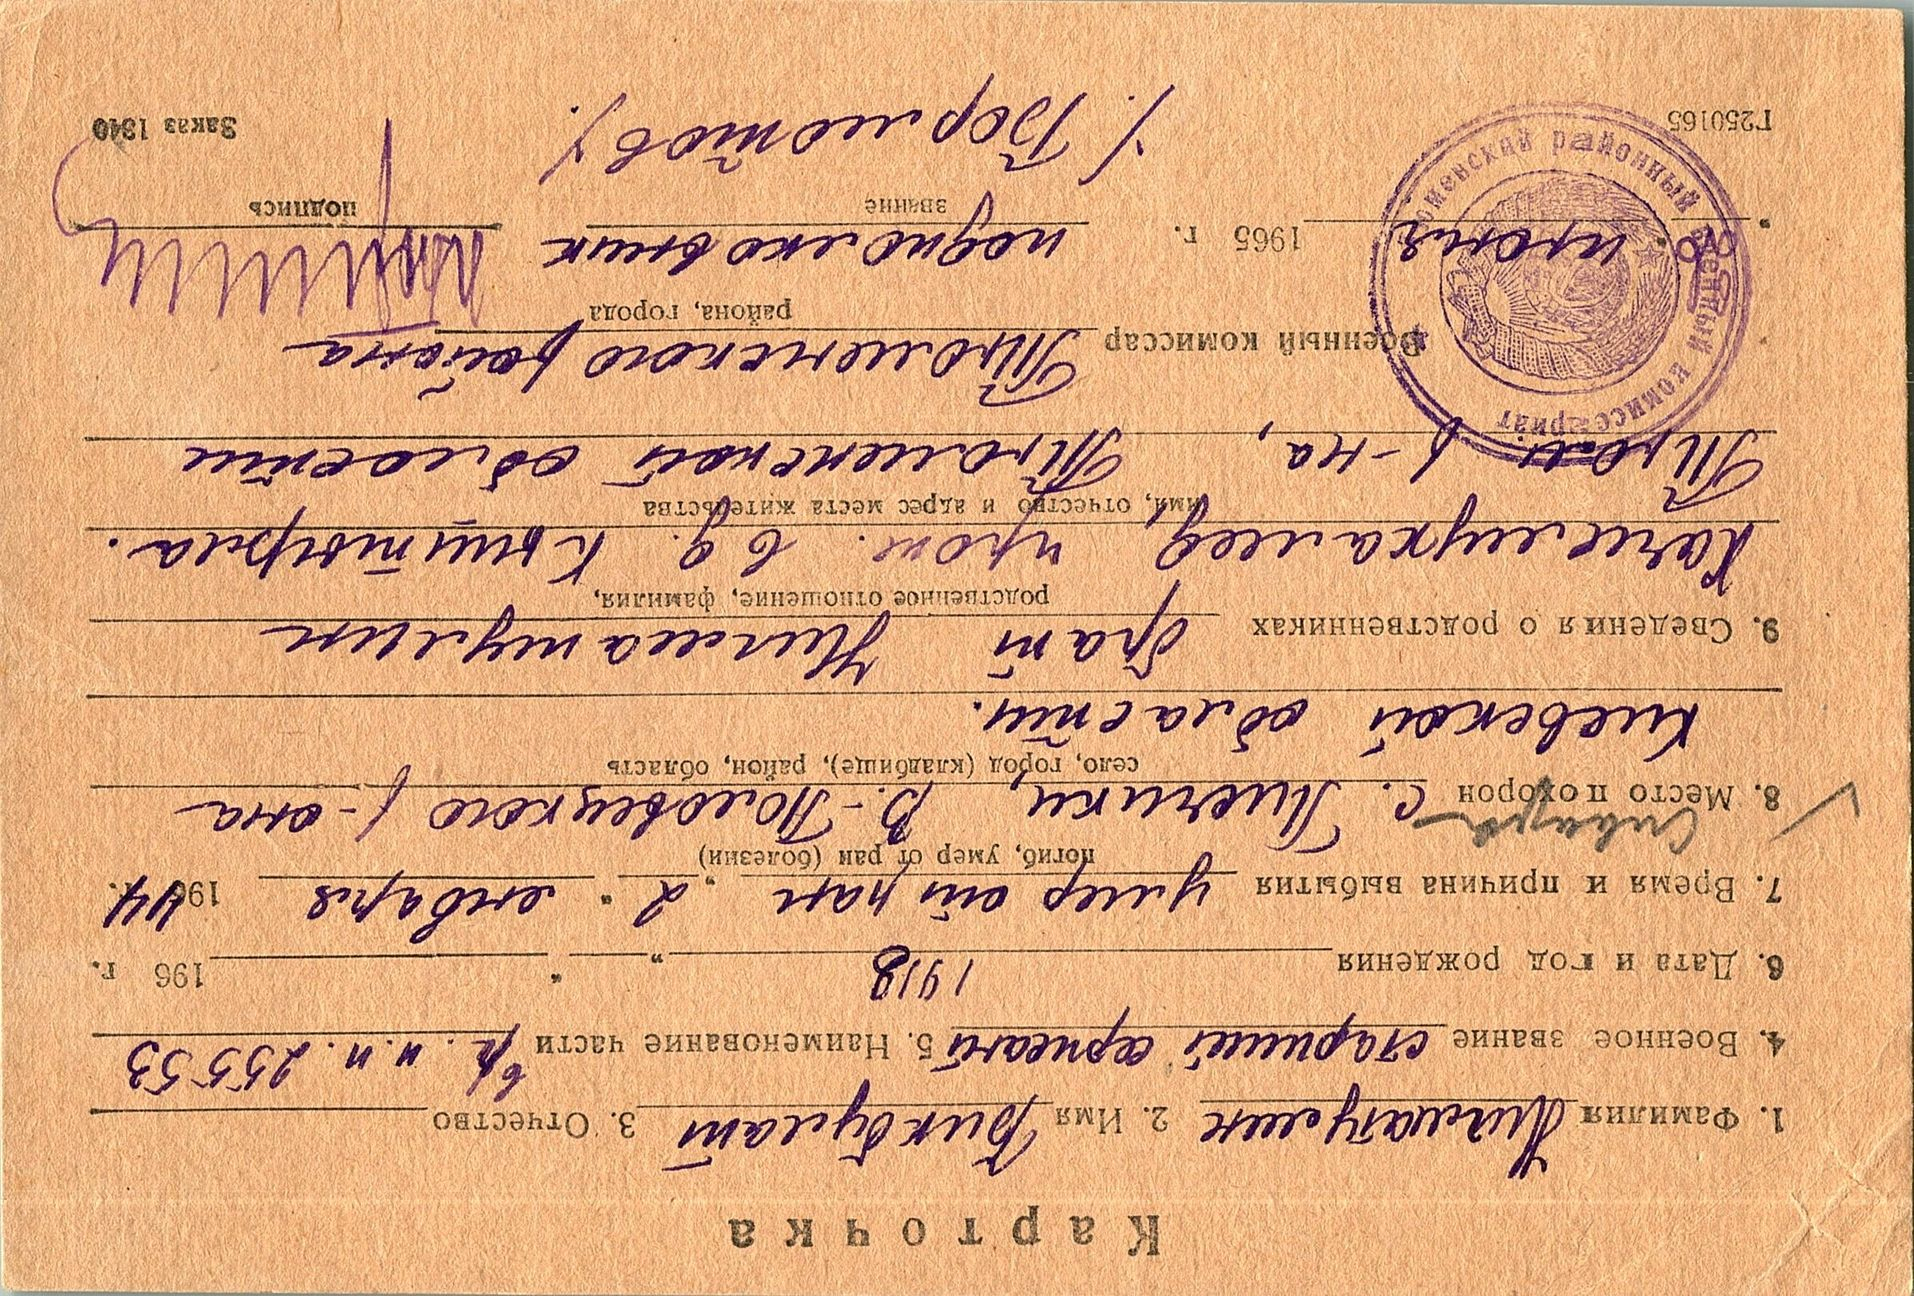 Карточка
1. Фамилия Нигматулин 2. Имя Бикбулат 3. Отчество
4. Военное звание старший сержант 5. Наименование части в/ч. п.п. 25553
6. Дата и год рождения 1918 " " 196 г.
7. Время и причина выбытия умер от ран „ 2 " января 1944 г.
погиб, умер от ран (болезни)
8. Место похорон с. Пивчики, В.-Половецкого р-она
село, город (кладбище), район, область
Киевской области.
9. Сведения о родственниках брат Нигматулин
родственное отношение, фамилия,
прож. в д. Кыштырла.
имя, отчество и адрес места жительства
Тюм. р-на, Тюменской области
Военный комиссар Тюменского района
района, города
июня 1965 г. подполковник
звание подпись
/. Бормотов/.
Г250165 Заказ 1340
Тюменский районный военный комиссариат